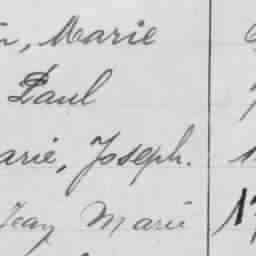 , Marie
Paul
arie, Joseph.
Jean Marie 17